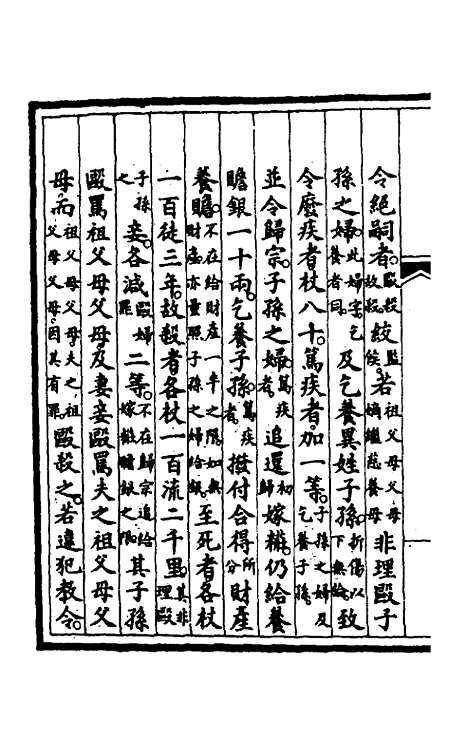 令絕嗣者。毆殺故殺絞監候。若祖父母父母嫡繼慈養母非理毆子
孫之婦。此婦字乞養者同及乞養異姓子孫。折傷以下無論致
令廢疾者杖八十。篤疾者。加一等。子孫之婦及乞養子孫
並令歸宗。子孫之婦。篤疾者追還初歸嫁糚。仍給養
贍銀一十兩。乞養子孫。篤疾者撥付合得所分財產
養贍。不在給財產一半之限如無財產亦量照子孫之婦給銀至死者各杖
一百徒三年。故殺者。各杖一百流二千里。其非理毆
子孫之妾。各減毆婦罪二等。不在歸宗追給嫁糚贍銀之限其子孫
毆罵祖父母父母。及妻妾毆罵夫之祖父母父
母。而祖父母父母夫之祖父母父母因其有罪毆殺之。若違犯教令。